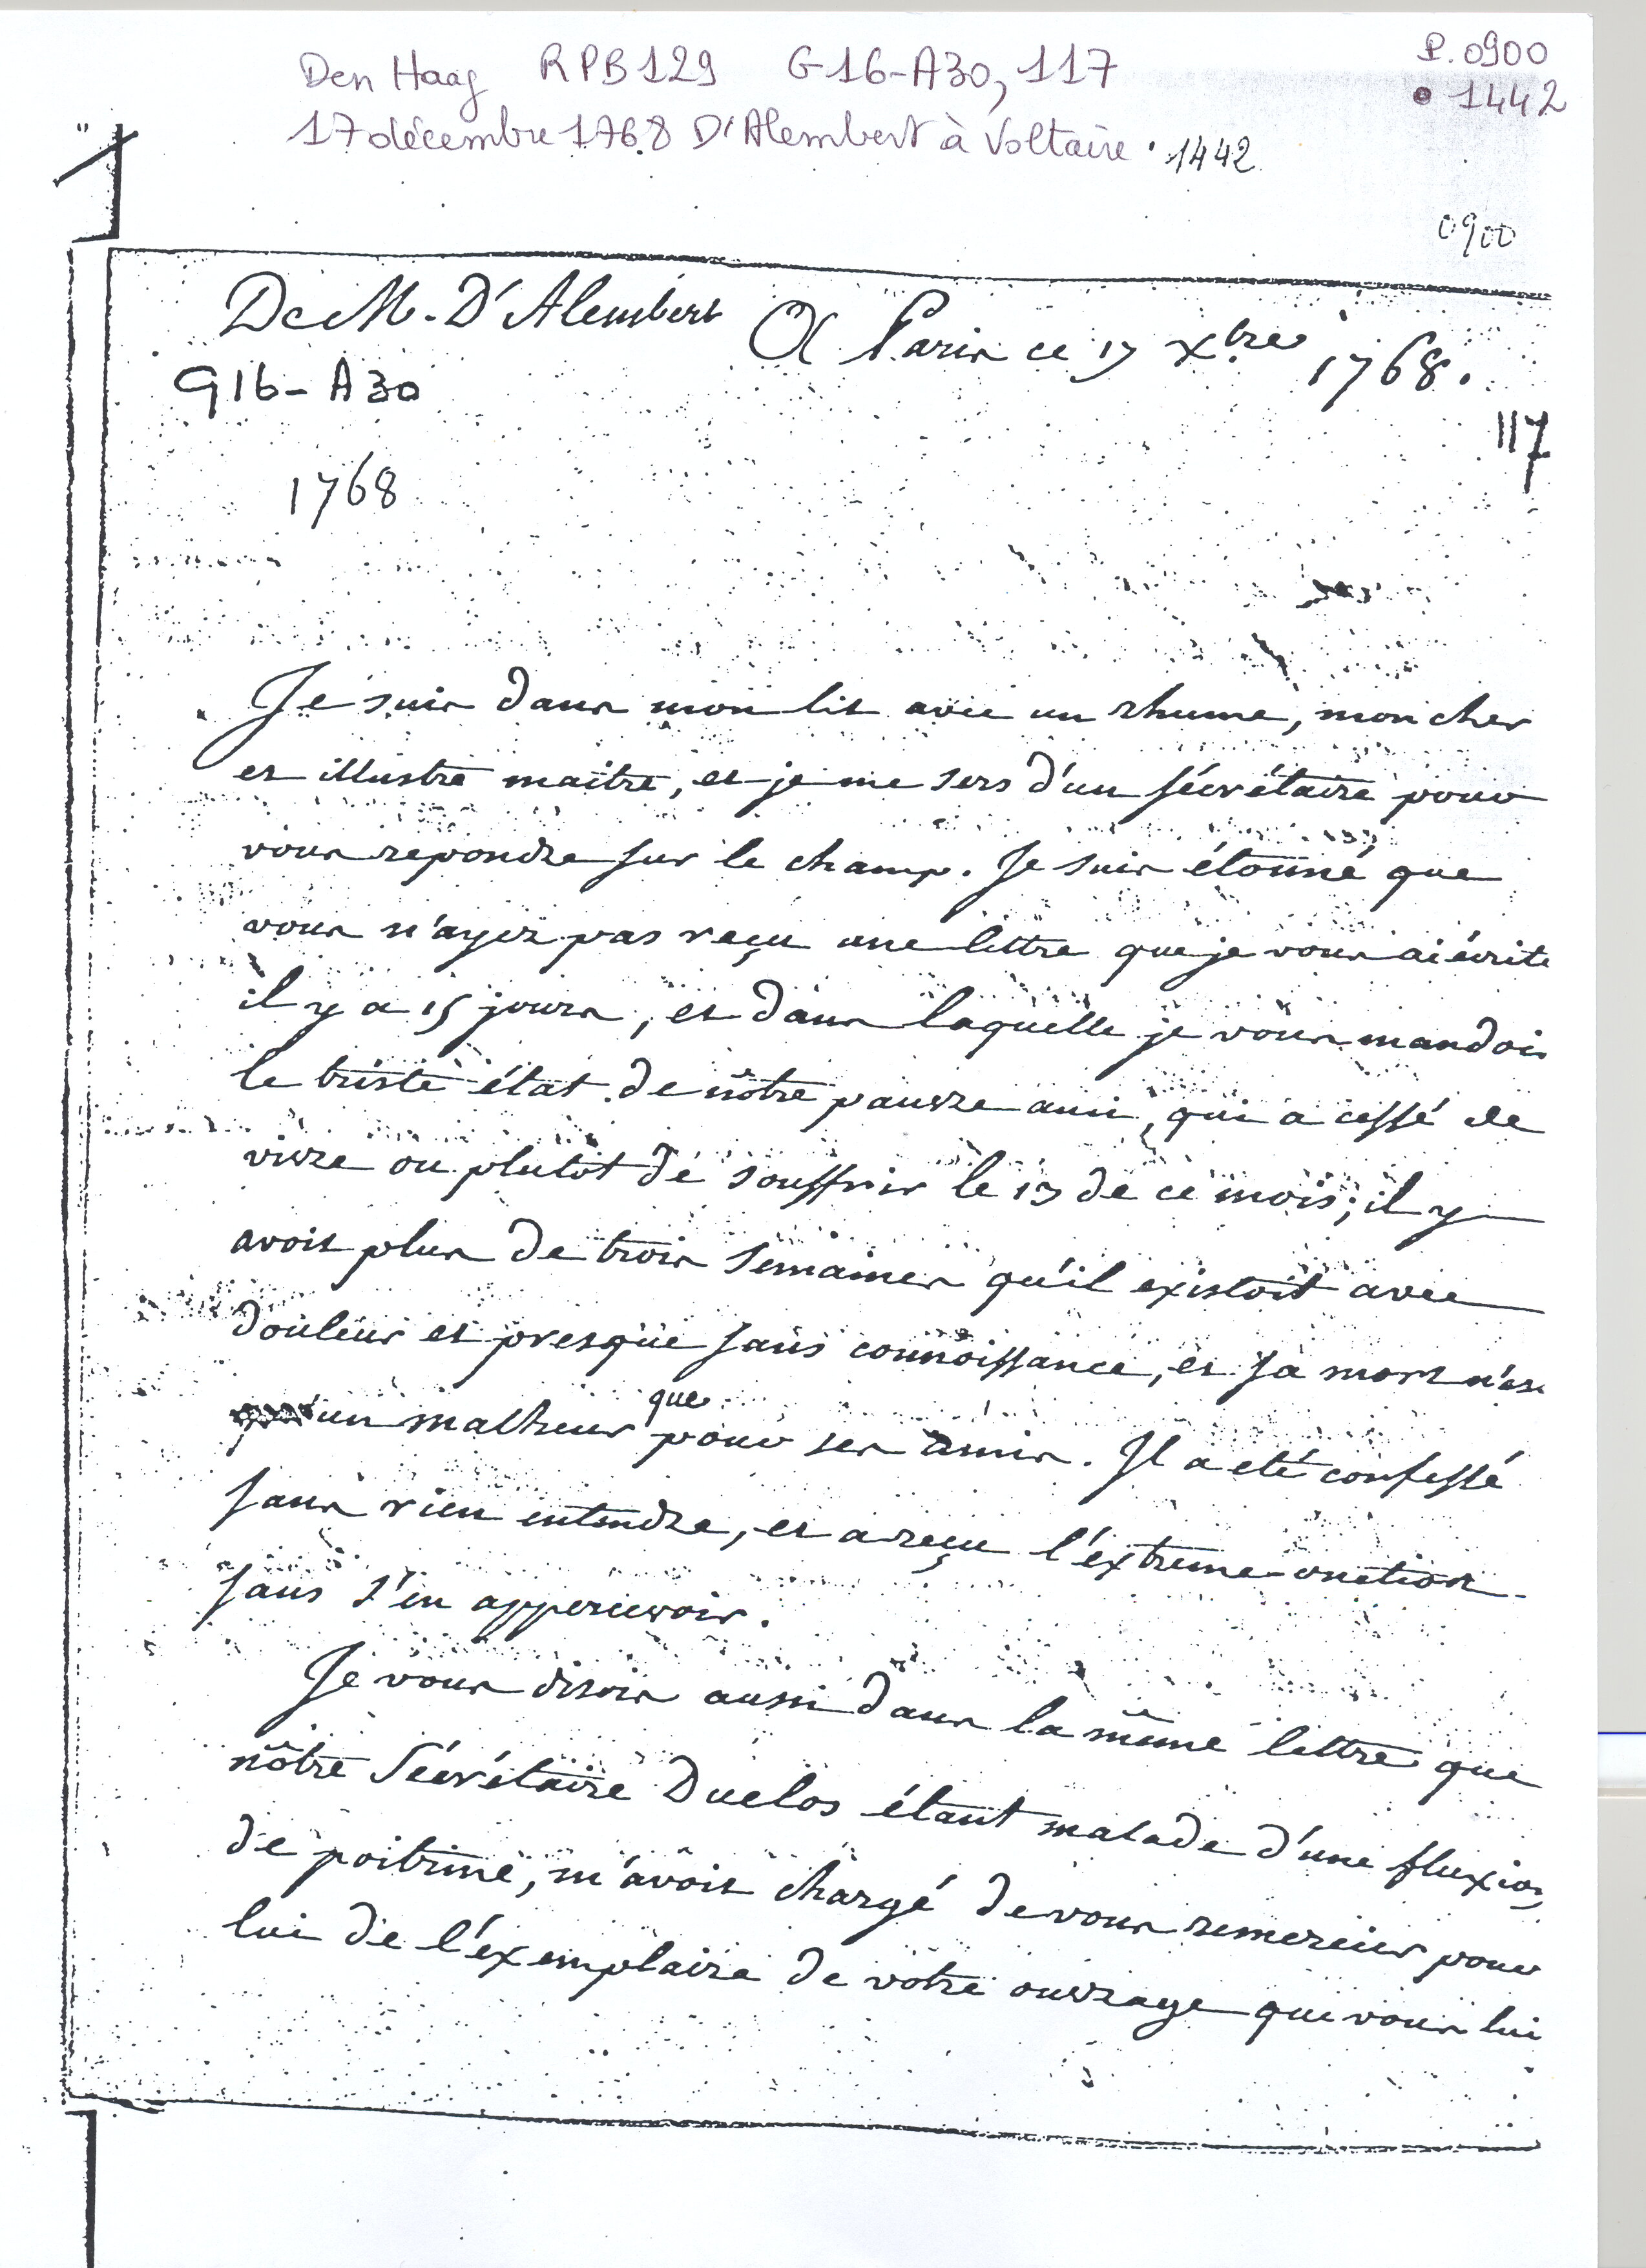 Den Haag RPB129 G16-A30, 117
P. 0900
• 1442
17 décembre 1768 D'Alembert à Voltaire . 1442
0900
De M. D'Alembert
A Paris ce 17 Xbre 1768.
G16-A30
117
1768
Je suis dans mon lit avec un rhume, mon cher
et illustre maitre, et je me sers d'un sécrétaire pour
vous repondre sur le champ. Je suis étonné que
vous n'ayez pas reçu une lettre que je vous ai écrite
il y a 15 jours, et dans laquelle je vous mandois
le triste état de nôtre pauvre ami, qui a cessé de
vivre ou plutôt de souffrir le 13 de ce mois; il y
avoit plus de trois semaines qu'il existoit avec
douleur et presque sans connoissance, et sa mort n'est
un malheur que pour ses amis. Il a eté confessé
sans rien entendre, et a reçu l'extreme-onction
sans s'en appercevoir.
Je vous disois aussi dans la même lettre que
nôtre Sécrétaire Duclos étant malade d'une fluxion
de poitrine, m'avoit chargé de vous remercier pour
lui de l'exemplaire de votre ouvrage que vous lui